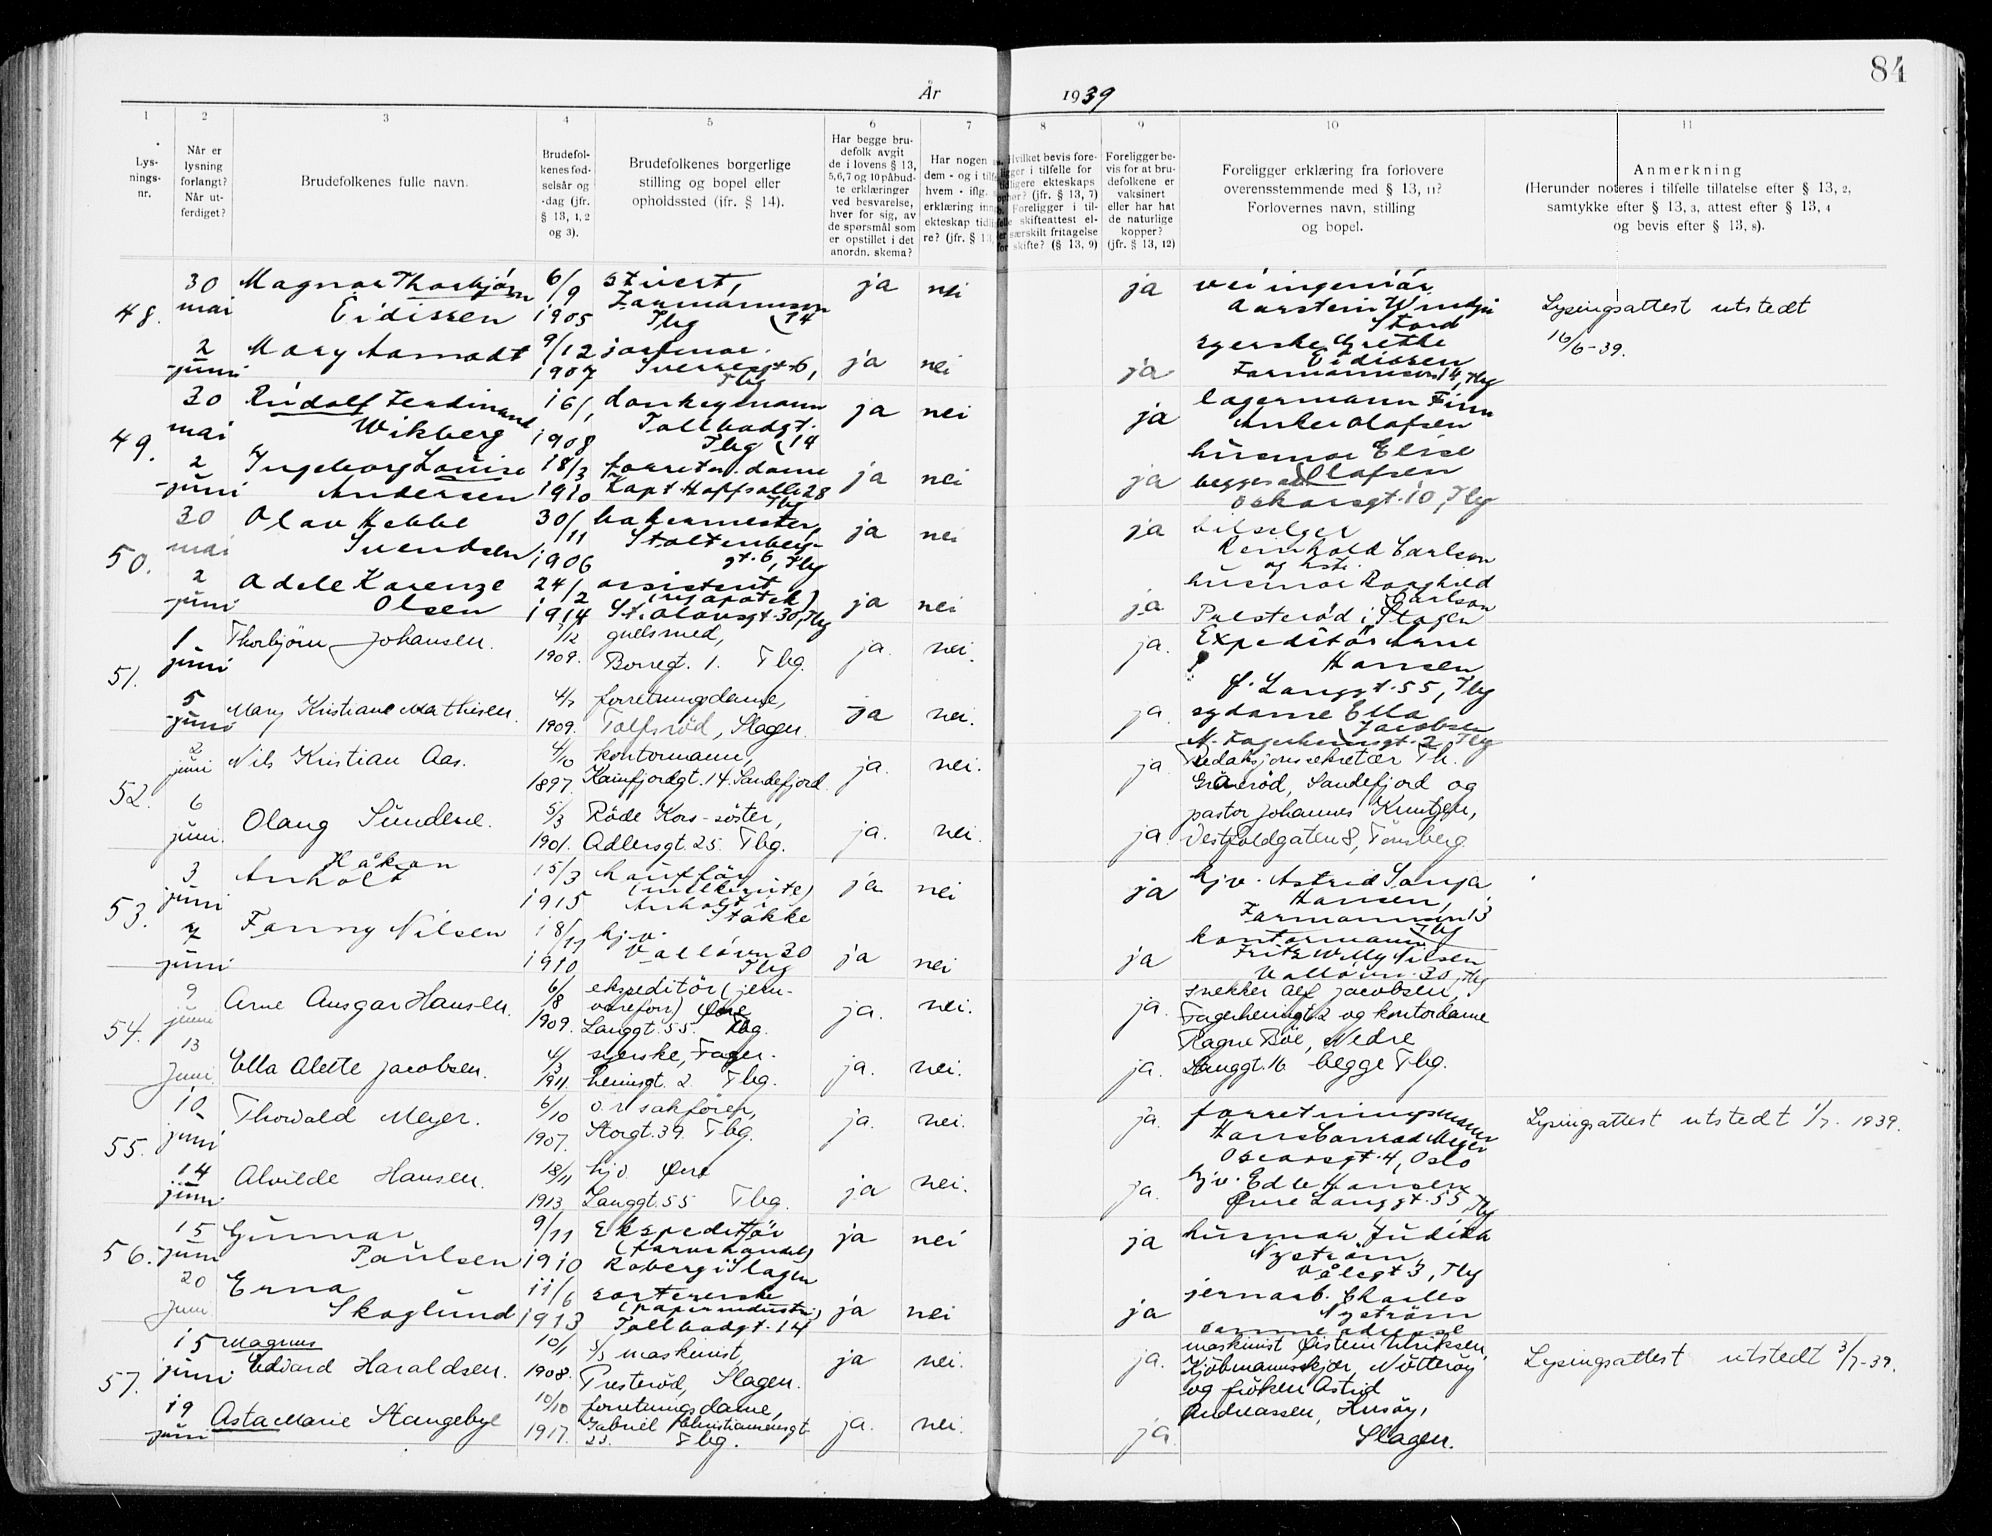 84
År 1939
1 2 3 4 5 6 7 8 9 10 11
Lys-
nings-
nr.
Når er
lysning
forlangt?
Når ut-
ferdiget?
Brudefolkenes fulle navn.
Brudefol-
kenes fød-
selsår og
-dag (jfr.
§ 13, 1, 2
og 3).
Brudefolkenes borgerlige
stilling og bopel eller
opholdssted (jfr. § 14).
Har begge bru-
defolk avgit
de i lovens § 13,
5, 6, 7 og 10 påbud-
te erklæringer
ved besvarelse,
hver for sig, av
de spørsmål som
er opstillet i det
anordn. skema?
Har nogen
dem - og i
hvem - iflg.
erklæring
ekteskap
re? (jfr. § 13,
Hvilket bevis fore-
ligger i tilfelle for
tidligere ekteskaps
ophør? (jfr. § 13, 7)
Foreligger i til-
felle skifteattest el-
ler særskilt fritagelse
for skifte? (§ 13, 9)
Foreligger be-
vis for at bru-
defolkene er
vaksinert
eller har hat
de naturlige
kopper?
(jfr. § 13, 12)
Foreligger erklæring fra forlovere
overensstemmende med § 13, 11?
Forlovernes navn, stilling
og bopel.
Anmerkning
(Herunder noteres i tilfelle tillatelse efter § 13, 2,
samtykke efter § 13, 3, attest efter § 13, 4
og bevis efter § 13, 8).
48.
30 mai
Magnar Thorbjørn
Eidissen
6/9 1905
stuert,
Farmannsvn
14 Tbg
ja nei ja
veiingeniør
Stord
Lysingsattest utstedt
16/6-39.
2 juni
Mary Aamodt
9/12 1907
jordmor.
Sverresgt 6,
Tbg
ja nei ja
syerske Grethe
Eidissen
Farmannsvn 14, Tbg
49.
30 mai
Rudolf Ferdinand
Wikberg
16/1 1908
donkeymann
Tollbodgt.
14 Tbg
ja nei ja
lagermann Finn
Anker Olafsen
2 juni
Ingeborg Louise
Andersen
18/3 1910
forretn. dame
Kapt Hoffsalle 28
Tbg
ja nei ja
husmor Elise
Olafsen
begges adr
Oskarsgt. 10, Tbg
50.
30 mai
Olav Hebbe
Svendsen
30/11 1906
bakermester,
Stoltenberg-
gt. 6, Tbg
ja nei ja
bilselger
Reinhold Carlson
og
2 juni
Adele Karenze
Olsen
24/2 1914
assistent
(i apotek)
St. Olavsgt. 30, Tbg
ja nei ja
husmor Ragnhild
Carlson
Presterød i Slagen
51.
1 juni
Thorbjörn Johansen.
7/12 1909.
gullsmed,
Borregt. 1. Tbg.
ja. nei. ja.
Expeditör Arne
Hansen
Ø. Langgt. 55, Tbg
5 juni
Mary Kristiane Mathisen.
4/7 1909.
forretningsdame,
Tolfsröd, Slagen.
ja nei. ja.
sydame Ella
Jacobsen
N. Fagerheimsgt. 2 Tbg
52.
2 juni
Nils Kristian Aas.
4/10 1897.
kontormann,
Kamfjordgt. 14. Sandefjord.
ja. nei. ja.
Redaksjonssekretær Th.
Granerød, Sandefjord og
6 juni.
Olaug Sundene.
5/3 1901.
Röde Kors-söster,
Adlersgt. 25. Tbg.
ja. nei. ja.
pastor Johannes Knutzen,
Vestfoldgaten 8, Tönsberg
53.
3 juni
Håkon
Anholt
15/3 1915
hauffør
(melkerute)
Anholt i
Stokke
ja nei ja
hjv. Astrid Sonja
Hansen,
Farmannsvn 13
Tbg
7 juni
Fanny Nilsen
18/11 1910
hjv.
Valløvn 30
Tbg
ja nei ja
kontormann
Fritz Willy Nilsen
Valløvn. 30, Tbg
54.
9 juni
Arne Ansgar Hansen.
6/8 1909.
ekspeditör (jern-
vareforr) Øvre
Langgt. 55. Tbg.
ja. nei. ja.
snekker Alf Jacobsen,
Fagerheimgt 2 og kontordame
13 juni
Ella Alette Jacobsen.
4/3 1911.
syerske, Fager-
heimsgt. 2. Tbg.
ja. nei. ja.
Ragne Böe, Nedre
Langgt. 16 begge Tbg.
55.
10 juni
Thorvald Meyer.
6/10 1907.
o.r. sakförer,
Storgt. 39. Tbg.
ja. nei. ja.
forretningsmann
Hans Conrad Meyer
Oscarsgt. 4, Oslo
Lysingsattest utstedt 1/7. 1939.
14 juni
Alvilde Hansen.
18/11 1913.
hjv. Øvre
Langgt. 55 Tbg.
ja nei. ja.
hjv. Edle Hansen
Øvre Langgt. 55 Tbg
56.
15 juni
Gunnar
Paulsen
9/11 1910
Ekspeditør
Roberg i Slagen
ja nei ja
husmor Judith
Nyström
Vålegt 3, Tbg
20 juni
Erna
Skoglund
11/6 1913
sortererske
(papirindustri)
Tollbodgt. 14
ja nei ja
jernarb. Charles
Nyström
samme adresse
57.
15 juni
Magnus
Edvard Haraldsen.
10/1 1908.
maskinist,
Presteröd, Slagen.
ja nei. ja.
maskinist Øistein Ulriksen,
Kjöbmannskjær, Nötteröy
og fröken Astrid
Lysingsattest utstedt 3/7-39.
19 juni
Asta Marie Stangebye
10/10 1917.
forretningsdame,
Gabriel Christiansensgt
23. Tbg.
ja. nei. ja.
Andreassen, Husöy,
Slagen.